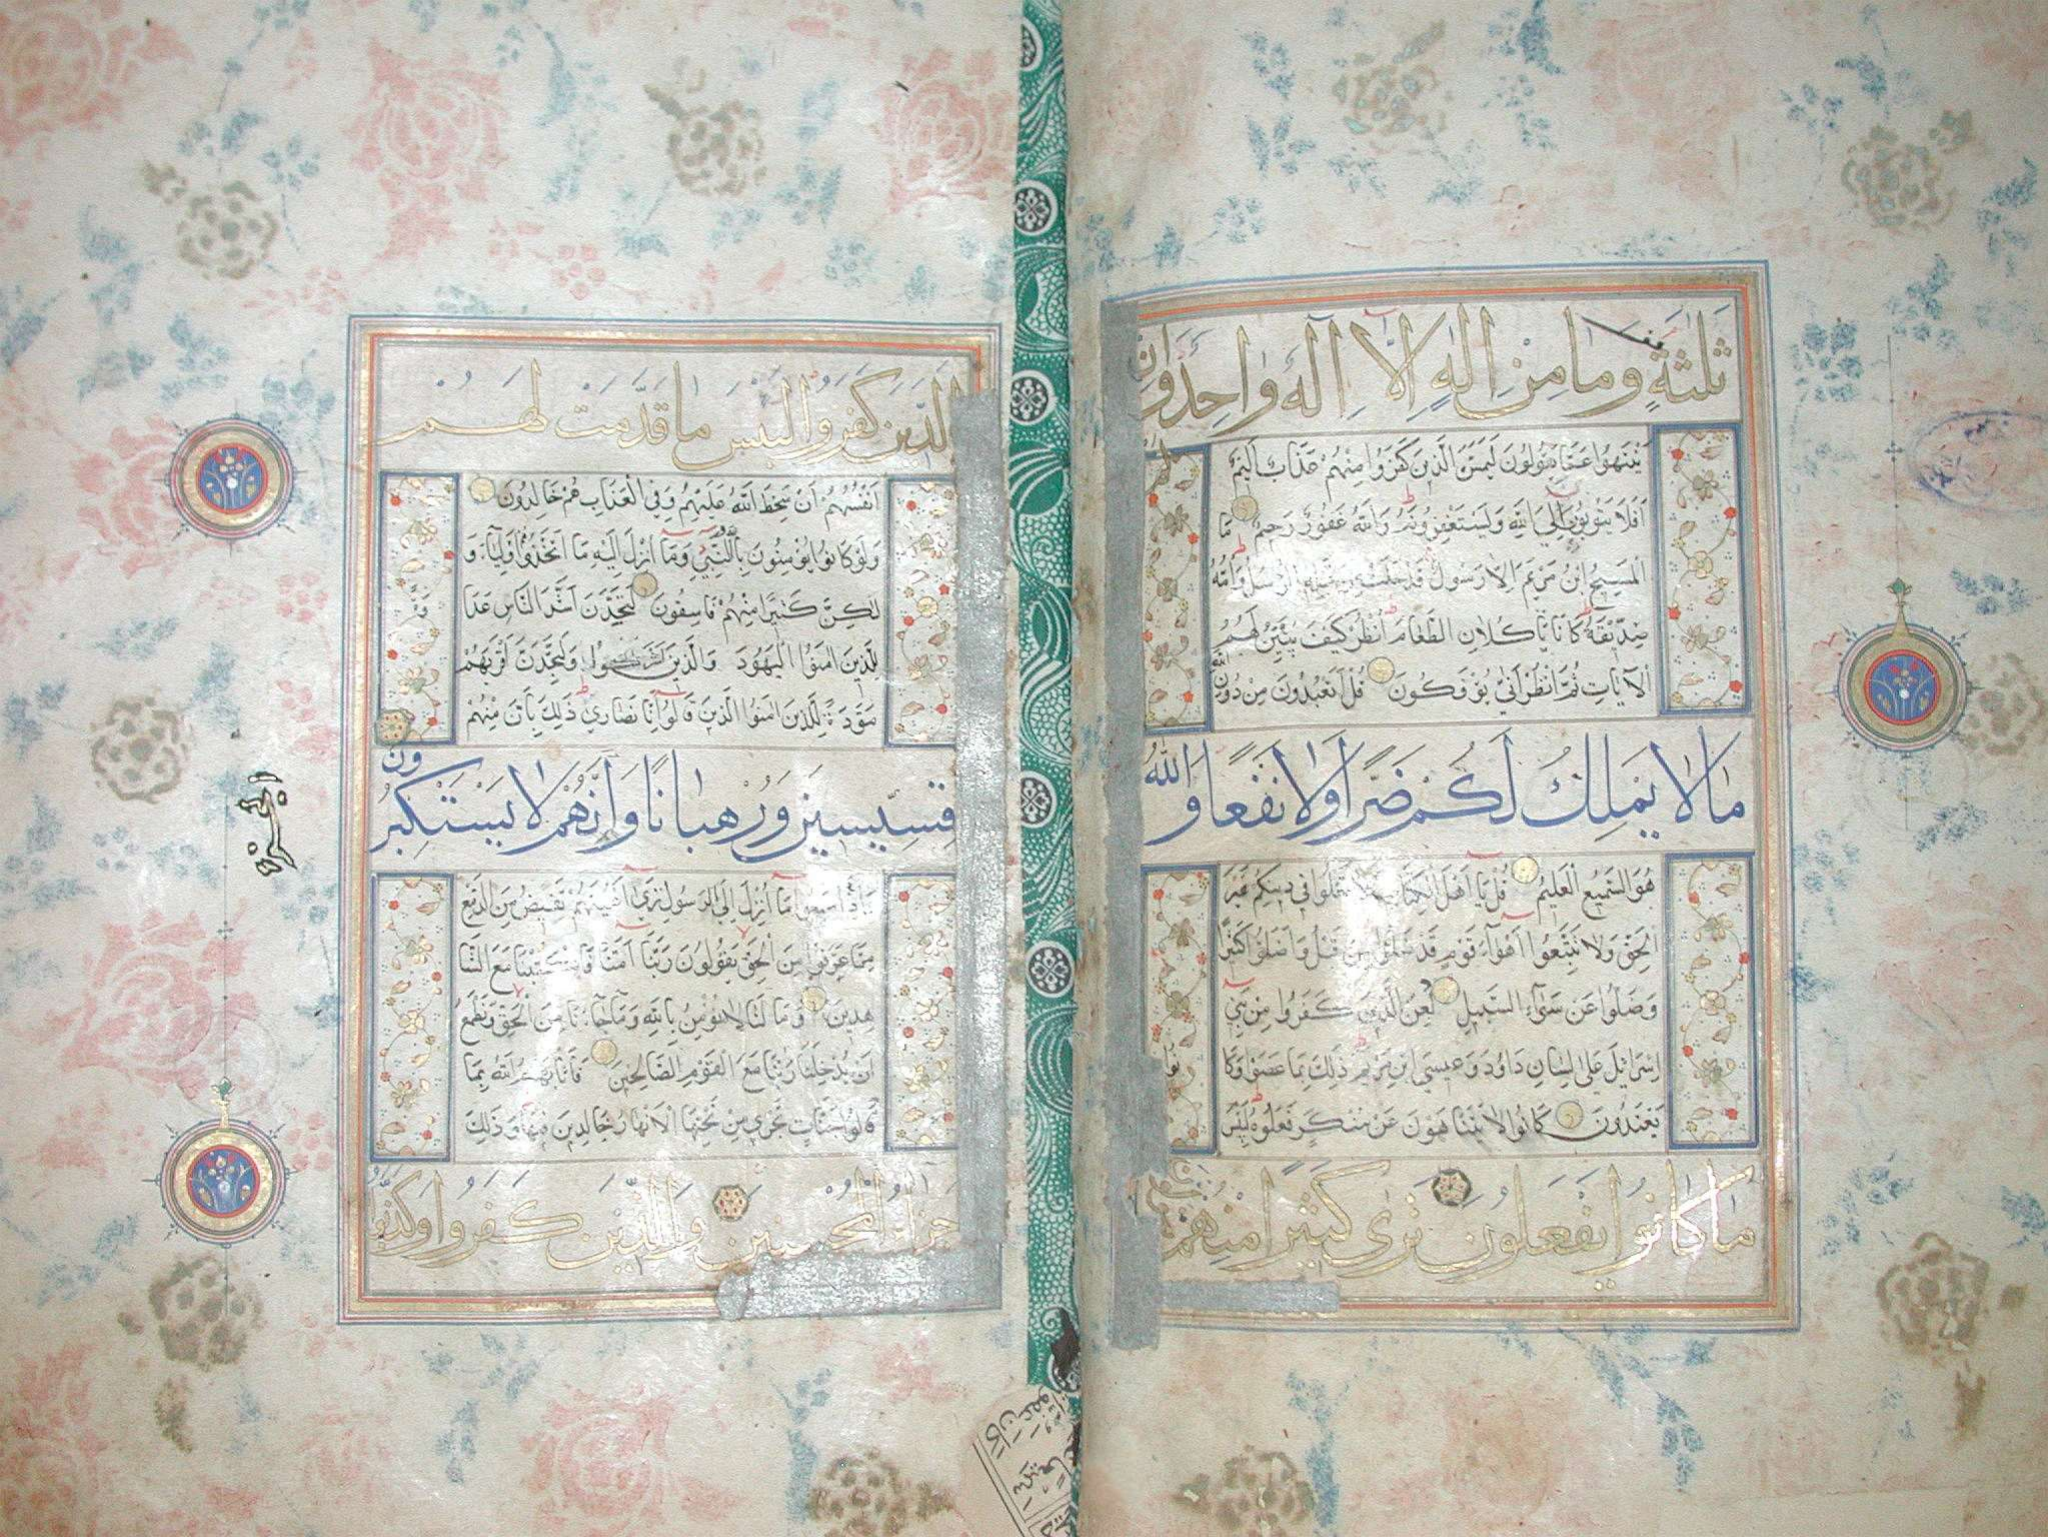 ثلثة وما من اله الا اله واحد وان
ينتهوا عما يقولون ليمسن الذين كفروا منهم عذاب اليم
افلا يتوبون الى الله ويستغفرونه والله غفور رحيم ما
المسيح ابن مريم الا رسول قد خلت من قبله الرسل وامه
صديقة كانا ياكلان الطعام انظر كيف نبين لهم
الآيات ثم انظر انى يؤفكون قل اتعبدون من دون الله
ما لا يملك لكم ضرا ولا نفعا والله
هو السميع العليم قل يا اهل الكتاب لا تغلوا في دينكم غير
الحق ولا تتبعوا اهواء قوم قد ضلوا من قبل واضلوا كثيرا
وضلوا عن سواء السبيل لعن الذين كفروا من بني
اسرائيل على لسان داود وعيسى ابن مريم ذلك بما عصوا وكانوا
يعتدون كانوا لا يتناهون عن منكر فعلوه لبئس
ما كانوا يفعلون ترى كثيرا منهم يتولون
الذين كفروا لبئس ما قدمت لهم
انفسهم ان سخط الله عليهم وفي العذاب هم خالدون
ولو كانوا يؤمنون بالله والنبي وما انزل اليه ما اتخذوهم اولياء و
لكن كثيرا منهم فاسقون لتجدن اشد الناس عداوة
للذين امنوا اليهود والذين اشركوا ولتجدن اقربهم
مودة للذين امنوا الذين قالوا انا نصارى ذلك بان منهم
قسيسين ورهبانا وانهم لا يستكبرون
واذا سمعوا ما انزل الى الرسول ترى اعينهم تفيض من الدمع
مما عرفوا من الحق يقولون ربنا امنا فاكتبنا مع الشا
هدين وما لنا لا نؤمن بالله وما جاءنا من الحق ونطمع
ان يدخلنا ربنا مع القوم الصالحين فاثابهم الله بما
قالوا جنات تجري من تحتها الانهار خالدين فيها وذلك
جزاء المحسنين والذين كفروا وكذبوا